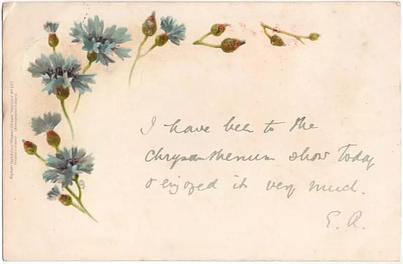 I have been to the
chrysanthemum show today
& enjoyed it very much.
E. R.